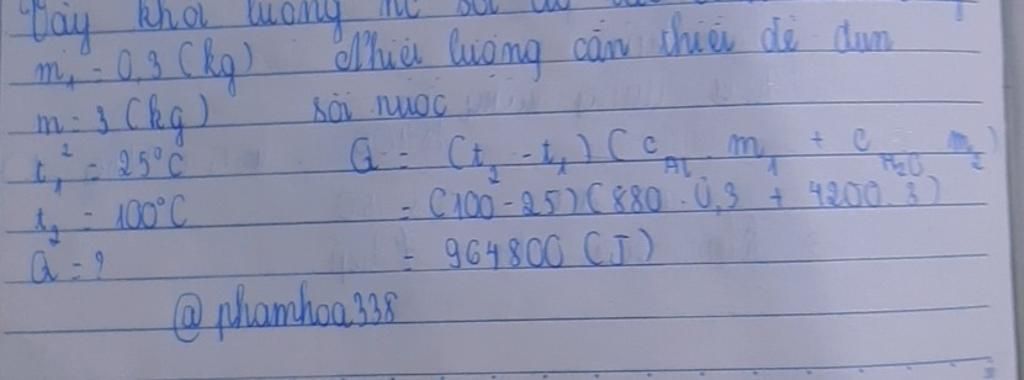 Vậy khối lượng
m₁ = 0,3 (kg) Nhiệt lượng cần thiết để đun
m₂ = 3 (kg) sôi nước
t₁ = 25°C Q = (t₂ - t₁) (c_Al . m₁ + c_H₂O . m₂)
t₂ = 100°C = (100 - 25) (880 . 0,3 + 4200 . 3)
Q = ? = 964800 (J)
@phamhoa338